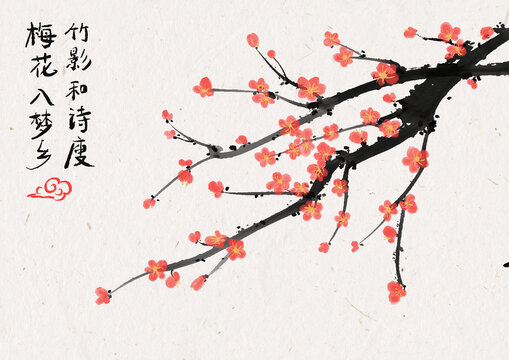 竹影和诗瘦
梅花入梦乡